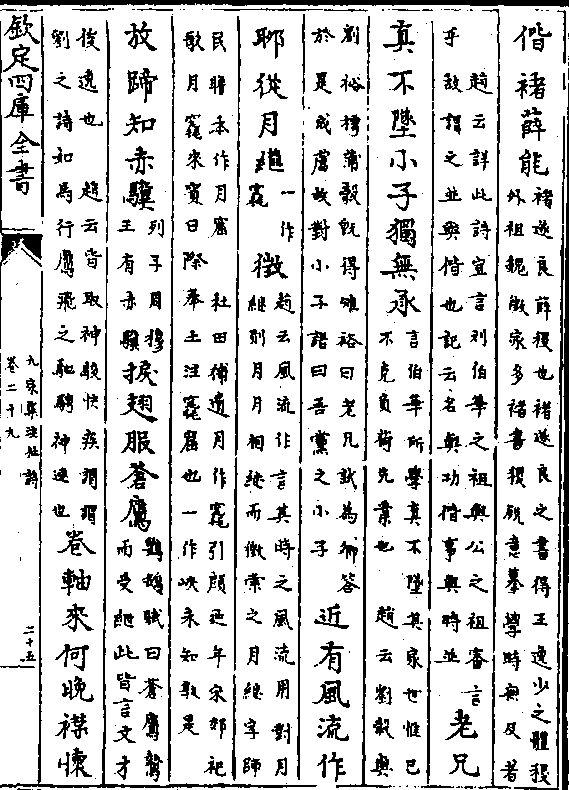 偕褚薛能
褚遂良薛稷也褚遂良之書得王逸少之體稷
外祖魏徵家多褚書稷銳意摹學時無及著
趙云詳此詩宜言劉伯華之祖與公之祖審言
乎故謂之並與偕也記云名與功偕事與時並
老兄
真不墜小子獨無承
言伯華所學真不墜其家世惟已
不克負荷先業也 趙云劉毅與
劉裕摴蒲毅既得雉裕曰老兄試為卿答
於是成盧故對小子語曰吾黨之小子
近有風流作
聊從月繼
一作
窟
徵
趙云風流作言其時之風流用對月
繼則月月相繼而徵索之月繼字師
民瞻本作月窟 杜田補遺月作窟引顏延年宋郊祀
歌月竁來賓日際奉土注竁窟也一作峽未知孰是
放蹄知赤驥
列子周穆
王有赤驥
捩翅服蒼鷹
鸚鵡賦曰蒼鷹鷙
而受紲此皆言文才
俊逸也 趙云皆取神駿快疾謂謂
劉之詩如馬行鷹飛之馳騁神速也
卷軸來何晚襟懷
欽定四庫全書
九家集注杜詩
卷二十九
二十五